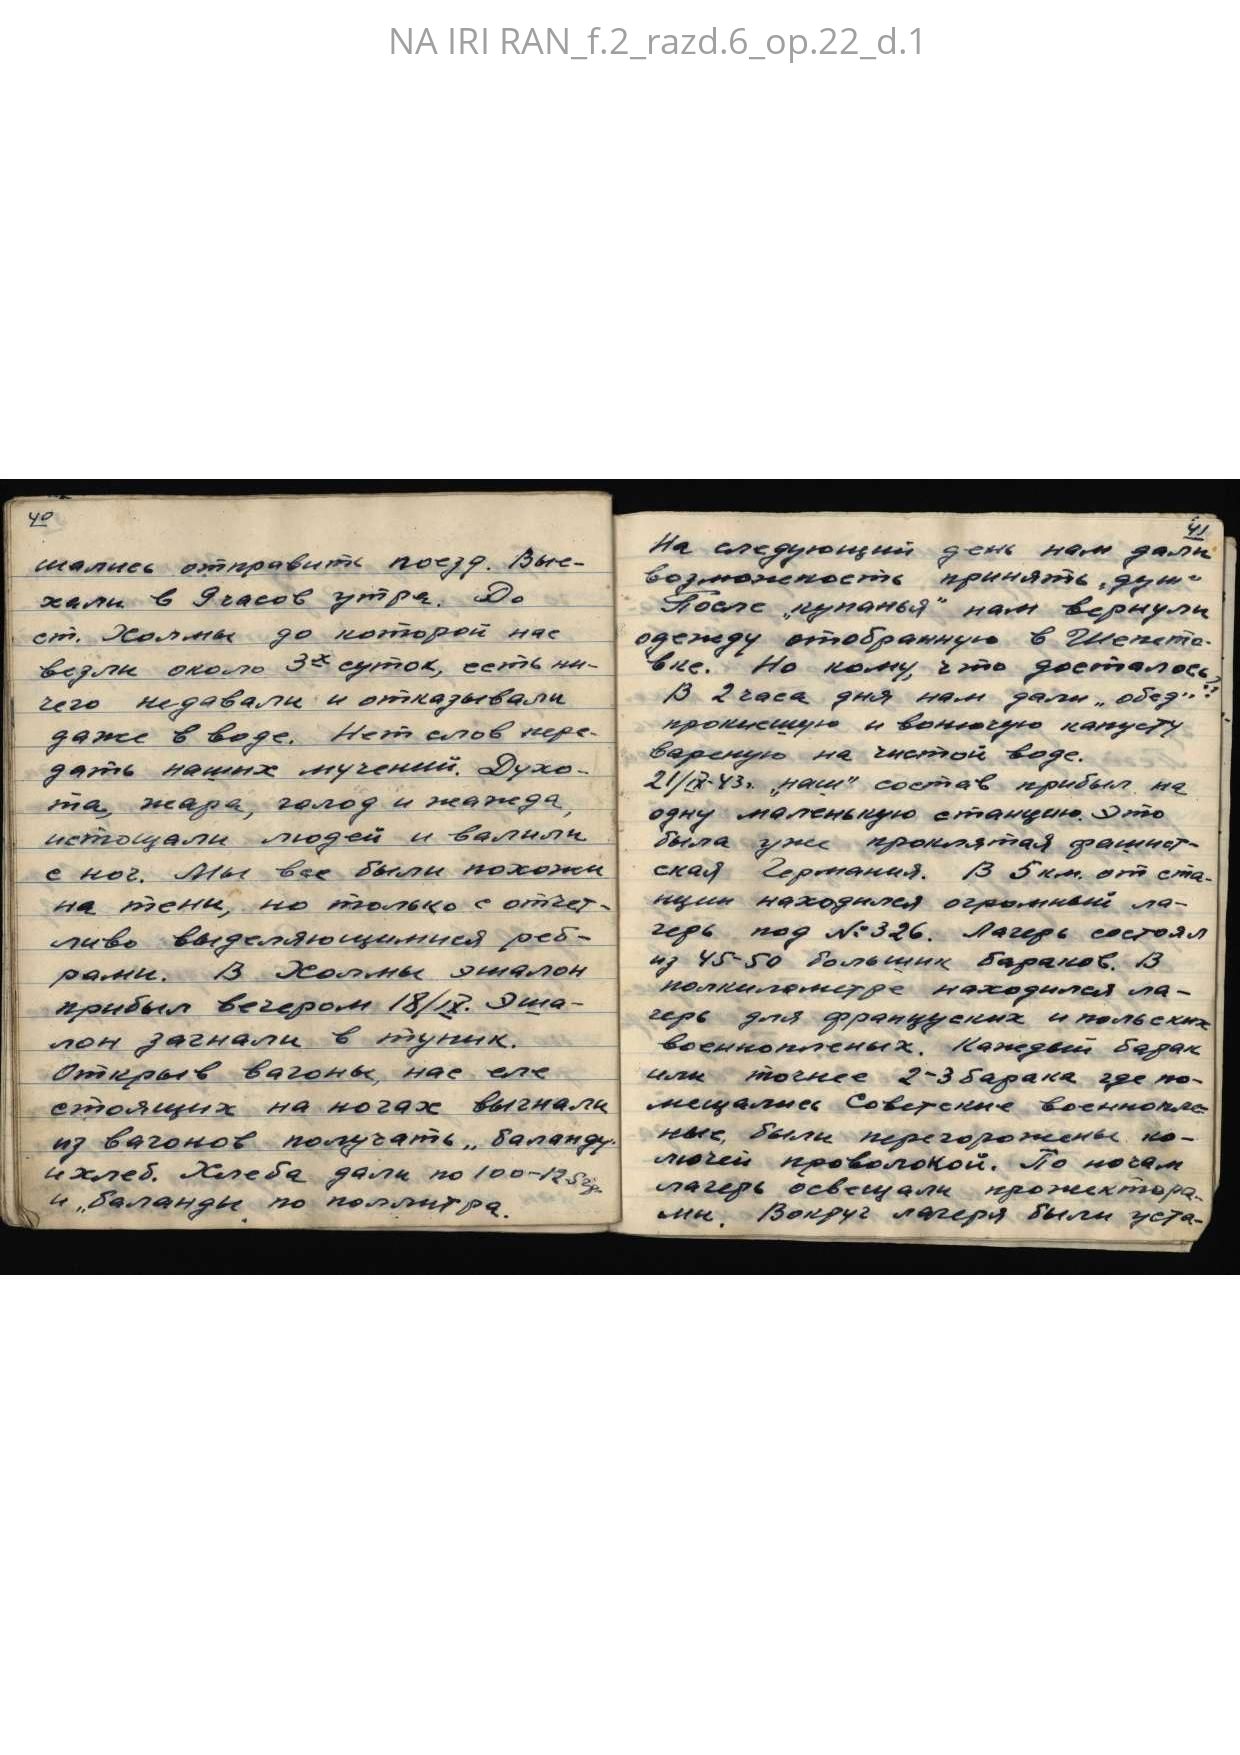 NA IRI RAN_f.2_razd.6_op.22_d.1
40
шались отправить поезд. Вые-
хали в 9 часов утра. До
ст. Холмы до которой нас
везли около 3х суток, есть ни-
чего недавали и отказывали
даже в воде. Нет слов пере-
дать наших мучений. Духо-
та, жара, голод и жажда,
истощали людей и валили
с ног. Мы все были похожи
на тени, но только с отчет-
ливо выделяющимися реб-
рами. В Холмы эшалон
прибыл вечером 18/IX. Эша-
лон загнали в тупик.
Открыв вагоны, нас еле
стоящих на ногах выгнали
из вагонов получать „баланду"
и хлеб. Хлеба дали по 100-125гр.
и „баланды по поллитра.
41
На следующий день нам дали
возможность принять „душ"
После „купанья" нам вернули
одежду отобранную в Шепето-
вке. Но кому, что досталось??
В 2 часа дня нам дали „обед":
прокисшую и вонючую капусту
вареную на чистой воде.
21/IX-43г. „наш" состав прибыл на
одну маленькую станцию. Это
была уже проклятая фашист-
ская Германия. В 5 км. от ста-
нции находился огромный ла-
герь под №326. Лагерь состоял
из 45-50 больших бараков. В
полкилометре находился ла-
герь для французских и польских
военнопленых. Каждый барак
или точнее 2-3 барака где по-
мещались Советские военнопле-
ные, были перегорожены ко-
лючей проволокой. По ночам
лагерь освещали прожектора-
ми. Вокруг лагеря были уста-